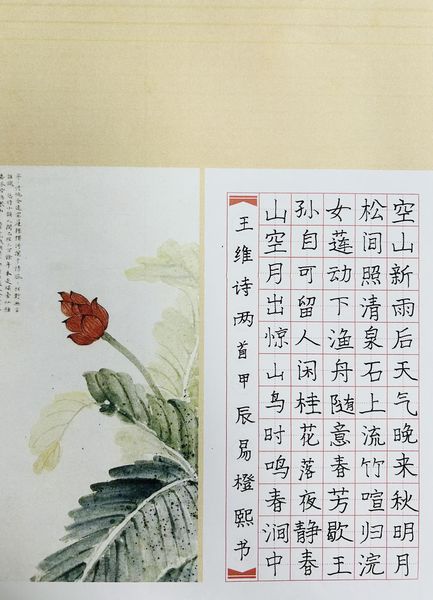 空山新雨后天气晚来秋明月
松间照清泉石上流竹喧归浣
女莲动下渔舟随意春芳歇王
孙自可留人闲桂花落夜静春
山空月出惊山鸟时鸣春涧中
王维诗两首甲辰易橙熙书